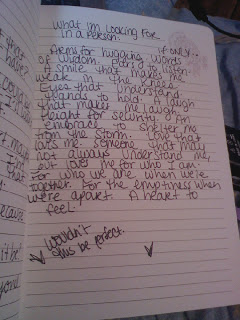 What I'm Looking For
in a Person.
if only.
Arms for hugging. Words
of wisdom.
a smile that makes me
weak in the knees
Eyes that understand
Hands to hold. A laugh
that makes me laugh.
Height for security. An
embrace to shelter me
from the storm. Love that
lasts me. Someone that may
not always understand me,
but loves me for who I am.
For who we are when we're
together. For the emptiness when
we're apart. A heart to
feel.
Wouldn't
this be perfect.